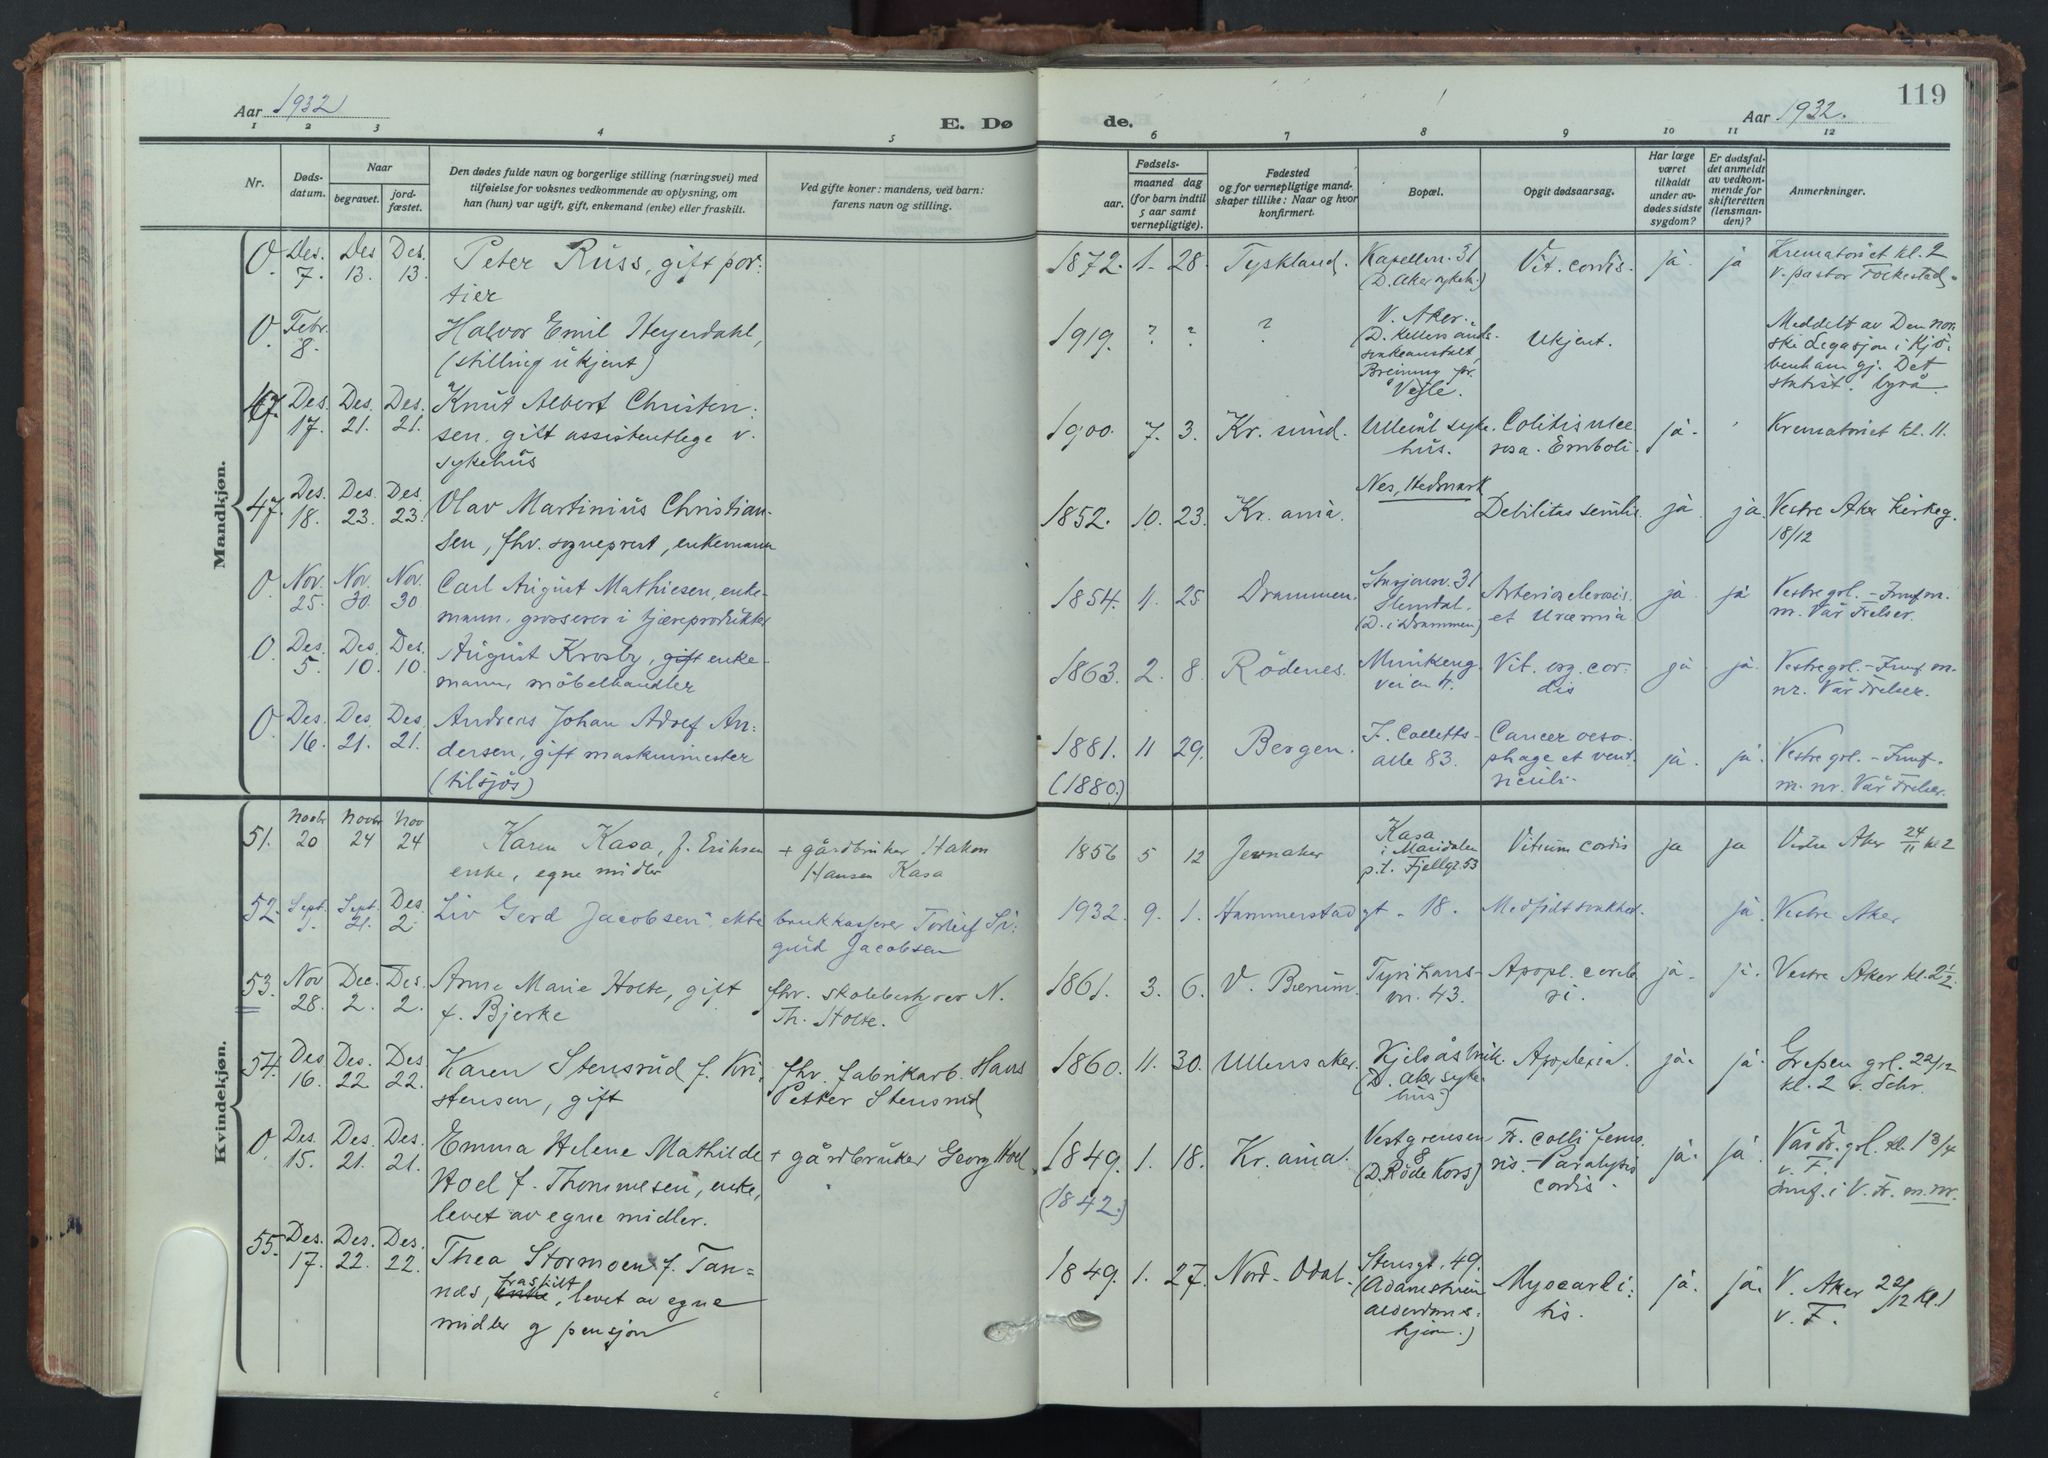 Aar 1932
E. Dø
1 2 3 4 5
Nr.
Døds-
datum.
Naar
begravet.
jord-
fæstet.
Den dødes fulde navn og borgerlige stilling (næringsvei) med
tilføielse for voksnes vedkommende av oplysning, om
han (hun) var ugift, gift, enkemand (enke) eller fraskilt.
Ved gifte koner: mandens, ved barn:
farens navn og stilling.
Mandkjøn.
0. Des. 7. Des 13. Des. 13. Peter Russ, gift por-
tier
0. Febr. 8. Halvor Emil Heyerdahl,
(stilling ukjent)
47. Des. 17. Des. 21. Des. 21. Knut Albert Christen-
sen, gift assistentlege v.
sykehus
47. Des. 18. Des. 23. Des. 23. Olav Martinius Christian-
sen, fhv. sogneprest, enkemann
0. Nov. 25. Nov. 30. Nov. 30 Carl August Mathiesen, enke-
mann, grosserer i tjæreprodukter
0. Des. 5. Des. 10. Des. 10. August Krosby, gift enke-
mann, møbelhandler
0. Des. 16. Des. 21. Des. 21. Andreas Johan Adolf An-
dersen, gift maskinmester
(tilsjøs)
Kvindekjøn.
51. Novbr 20 Novbr 24 Nov 24 Karen Kasa, f. Eriksen + gårdbruker Hakon
enke, egne midler Hansen Kasa
52. Sept. Sept. 21. Des. 2. Liv Gerd Jacobsen, ekte bankkasserer Torleif Si-
gurd Jacobsen
53. Nov 28. Dec. 2. Des. 2. Anne Marie Holte, gift fhv. skolebestyrer N.
f. Bjerke Th. Holte.
54. Des 16. Des. 22 Des 22. Karen Stensrud f. Kri- fhv. fabrikarb. Hans
stensen, gift Petter Stensrud
0. Des. 15. Des. 21. Des. 21. Emma Helene Mathilde + gårdbruker Georg Hoel
Hoel f. Thommesen, enke,
levet av egne midler.
55. Des. 17. Des. 22. Des. 22. Thea Stormoen f. Tan-
næs, enke fraskilt, levet av egne
midler og pensjon
119
de.
Aar 1932.
6 7 8 9 10 11 12
Fødsels-
aar.
maaned dag
(for barn indtil
5 aar samt
vernepligtige).
Fødested
og for vernepligtige mand-
skaper tillike: Naar og hvor
konfirmert.
Bopæl.
Opgit dødsaarsag.
Har læge
været
tilkaldt
under av-
dødes sidste
sygdom?
Er dødsfal-
det anmeldt
av vedkom-
mende for
skifteretten
(lensman-
den)?
Anmerkninger.
1872. 1. 28. Tyskland. Kapellvn. 31 (D. Aker sykeh.) Vit. cordis. ja. ja Krematoriet kl. 2
v. pastor Falkestad.
1919. ? ? ? V. Aker. (D. Kellers ånds-
svakeanstalt, Breining pr. Vejle. Ukjent. Meddelt av Den nor-
ske Legasjon i Kjø-
benhavn gj. Det
statist. byrå.
1900. 7. 3. Kr. sund. Ullevål syke-
hus. Colitis ulce-
rosa. Emboli. ja. Krematoriet kl. 11.
1852. 10. 23. Kr.ania. Nes, Hedmark Debilitas senilis. ja ja. Vestre Aker kirkeg.
18/12
1854. 4. 25 Drammen. Stasjonsv. 31 Slemdal. (D. i Drammen) Arteriosclerosis
et Uræmia ja. ja Vestre grl. - Innf. m.
nr. Vår Frelser.
1863. 2. 8. Rødenes. Munkeng-
veien 4. Vit. org. cor-
dis ja ja. Vestre grl. - Innf. m.
nr. Vår Frelser.
1881. 11 29. Bergen. F. Colletts-
alle 83. Cancer oeso-
phage et vent-
riculi. ja. ja. Vestre grl. - Innf.
(1880.) m. nr. Vår Frelser.
1856 5 12 Jevnaker Kasa
i Maridalen
p.t. Fjellgt. 53 Vitium cordis ja ja Vestre Aker 24/11 kl 2
1932. 9. 1. Hammerstadgt. 18. Medfødt svakhet. ja. Vestre Aker
1861. 3. 6. V. Bærum. Tyrihans-
vn. 43. Apopl. cereb-
ri. ja. ja. Vestre Aker kl. 2 1/2.
1860. 11. 30. Ullensaker. Kjelsåsbruk
(D. Aker syke-
hus) Apoplexia. ja. ja. Grefsen grl. 22/12
kl. 2 v. Schr.
1849. 1. 18. Kr.ania. Vestgrensen
8
(D. Røde Kors) Fr. colli femo-
ris. - Paralysis
cordis. ja. ja. Vår Fr. grl. kl. 1 3/4
v. F.
(1842.) Innf. i V. Fr. m. nr.
1849. 1. 27. Nord-Odal. Stensgt. 49.
(Adamstuen
aldersdoms-
hjem.) Myocardi-
tis. ja. ja. V. Aker 22/12 kl. 1
v. F.